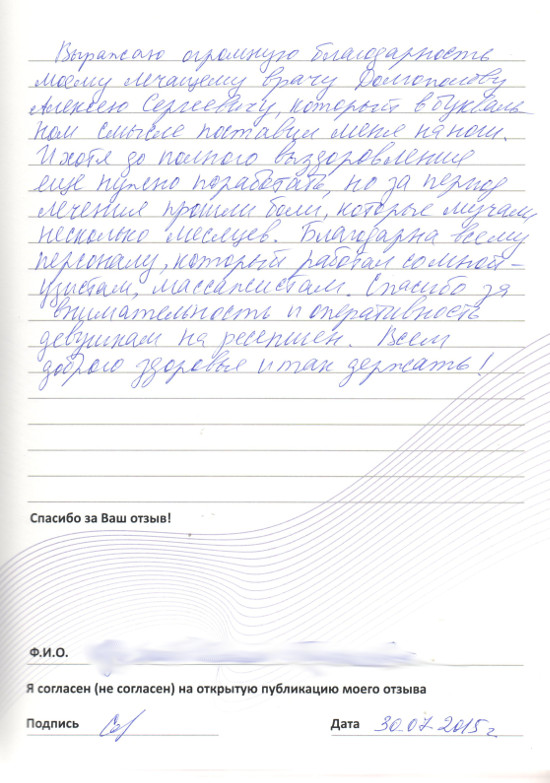 Выражаю огромную благодарность
моему лечащему врачу Долгополову
Алексею Сергеевичу, который в букваль
ном смысле поставил меня на ноги.
И хотя до полного выздоровления
еще нужно поработать, но за период
лечения прошли боли, которые мучали
несколько месяцев. Благодарна всему
персоналу, который работал со мной –
узистам, массажистам. Спасибо за
внимательность и оперативность
девушкам на ресепшен. Всем
доброго здоровья и так держать!
Спасибо за Ваш отзыв!
Ф.И.О.
Я согласен (не согласен) на открытую публикацию моего отзыва
Подпись Дата 30.07.2015 г